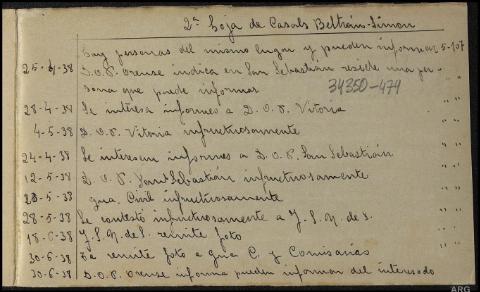 2ª hoja de Casals Beltrán-Simon
hay personas del mismo lugar y pueden informar 5-107
25-4-38 D.O.P. Orense indica en San Sebastián reside una per-
sona que puede informar
34350-474
28-4-38 Se interesa informes a D.O.P. Vitoria " "
4-5-38 D.O.P. Vitoria infructuosamente " "
24-4-38 Se interesan informes a D.O.P. San Sebastián " "
12-5-38 D.O.P. San Sebastián infructuosamente " "
2-5-38 gua. Civil infructuosamente " "
28-5-38 Se contestó infructuosamente a J.S.N. de S. " "
18-6-38 J.S.N. de S. remite foto " "
30-6-38 Se remite foto a gria C. y Comisarías " "
30-6-38 D.O.P. Orense informa pueden informar del interesado
ARG